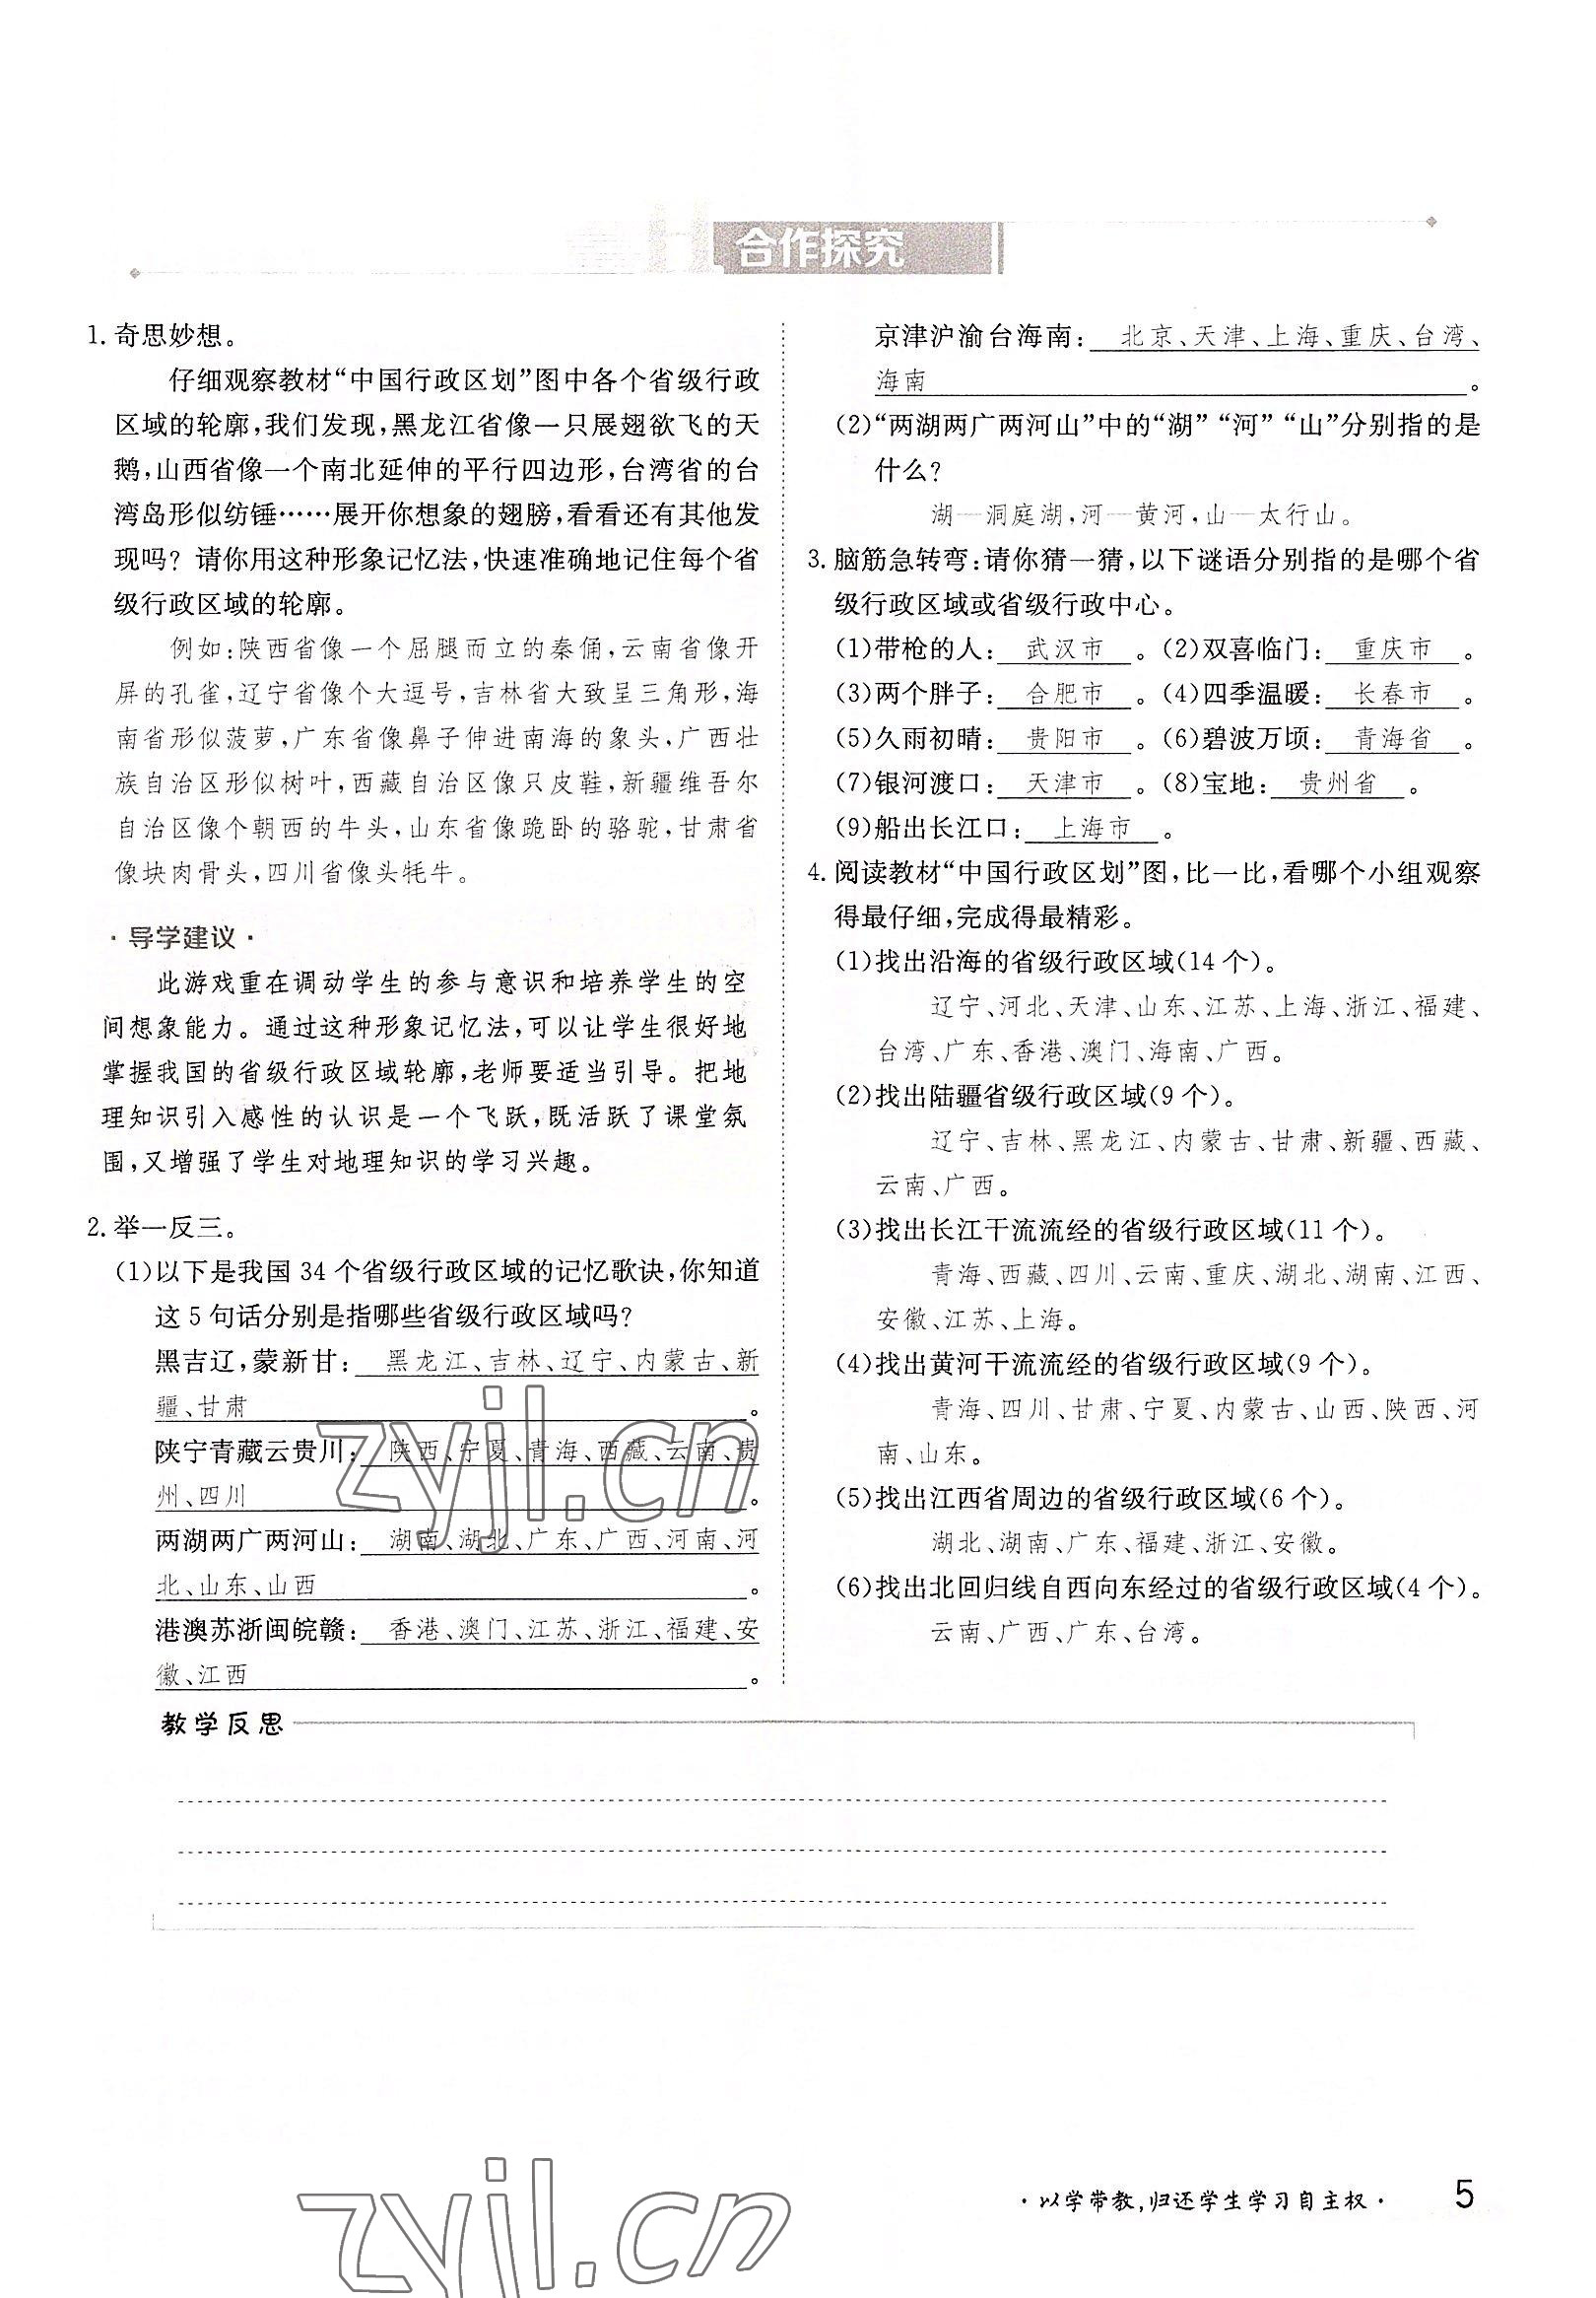 合作探究
1. 奇思妙想。
仔细观察教材“中国行政区划”图中各个省级行政
区域的轮廓,我们发现,黑龙江省像一只展翅欲飞的天
鹅,山西省像一个南北延伸的平行四边形,台湾省的台
湾岛形似纺锤……展开你想象的翅膀,看看还有其他发
现吗? 请你用这种形象记忆法,快速准确地记住每个省
级行政区域的轮廓。
例如:陕西省像一个屈腿而立的秦俑,云南省像开
屏的孔雀,辽宁省像个大逗号,吉林省大致呈三角形,海
南省形似菠萝,广东省像鼻子伸进南海的象头,广西壮
族自治区形似树叶,西藏自治区像只皮鞋,新疆维吾尔
自治区像个朝西的牛头,山东省像跪卧的骆驼,甘肃省
像块肉骨头,四川省像头牦牛。
·导学建议·
此游戏重在调动学生的参与意识和培养学生的空
间想象能力。通过这种形象记忆法,可以让学生很好地
掌握我国的省级行政区域轮廓,老师要适当引导。把地
理知识引入感性的认识是一个飞跃,既活跃了课堂氛
围,又增强了学生对地理知识的学习兴趣。
2. 举一反三。
(1)以下是我国 34 个省级行政区域的记忆歌诀,你知道
这 5 句话分别是指哪些省级行政区域吗?
黑吉辽,蒙新甘: 黑龙江、吉林、辽宁、内蒙古、新
疆、甘肃 。
陕宁青藏云贵川: 陕西、宁夏、青海、西藏、云南、贵
州、四川 。
两湖两广两河山: 湖南、湖北、广东、广西、河南、河
北、山东、山西 。
港澳苏浙闽皖赣: 香港、澳门、江苏、浙江、福建、安
徽、江西 。
京津沪渝台海南: 北京、天津、上海、重庆、台湾、
海南 。
(2)“两湖两广两河山”中的“湖”“河”“山”分别指的是
什么?
湖—洞庭湖,河—黄河,山—太行山。
3. 脑筋急转弯:请你猜一猜,以下谜语分别指的是哪个省
级行政区域或省级行政中心。
(1)带枪的人: 武汉市 。(2)双喜临门: 重庆市 。
(3)两个胖子: 合肥市 。(4)四季温暖: 长春市 。
(5)久雨初晴: 贵阳市 。(6)碧波万顷: 青海省 。
(7)银河渡口: 天津市 。(8)宝地: 贵州省 。
(9)船出长江口: 上海市 。
4. 阅读教材“中国行政区划”图,比一比,看哪个小组观察
得最仔细,完成得最精彩。
(1)找出沿海的省级行政区域(14 个)。
辽宁、河北、天津、山东、江苏、上海、浙江、福建、
台湾、广东、香港、澳门、海南、广西。
(2)找出陆疆省级行政区域(9 个)。
辽宁、吉林、黑龙江、内蒙古、甘肃、新疆、西藏、
云南、广西。
(3)找出长江干流流经的省级行政区域(11 个)。
青海、西藏、四川、云南、重庆、湖北、湖南、江西、
安徽、江苏、上海。
(4)找出黄河干流流经的省级行政区域(9 个)。
青海、四川、甘肃、宁夏、内蒙古、山西、陕西、河
南、山东。
(5)找出江西省周边的省级行政区域(6 个)。
湖北、湖南、广东、福建、浙江、安徽。
(6)找出北回归线自西向东经过的省级行政区域(4 个)。
云南、广西、广东、台湾。
教学反思
zyjl.cn
zyjl.cn
·以学带教,归还学生学习自主权· 5